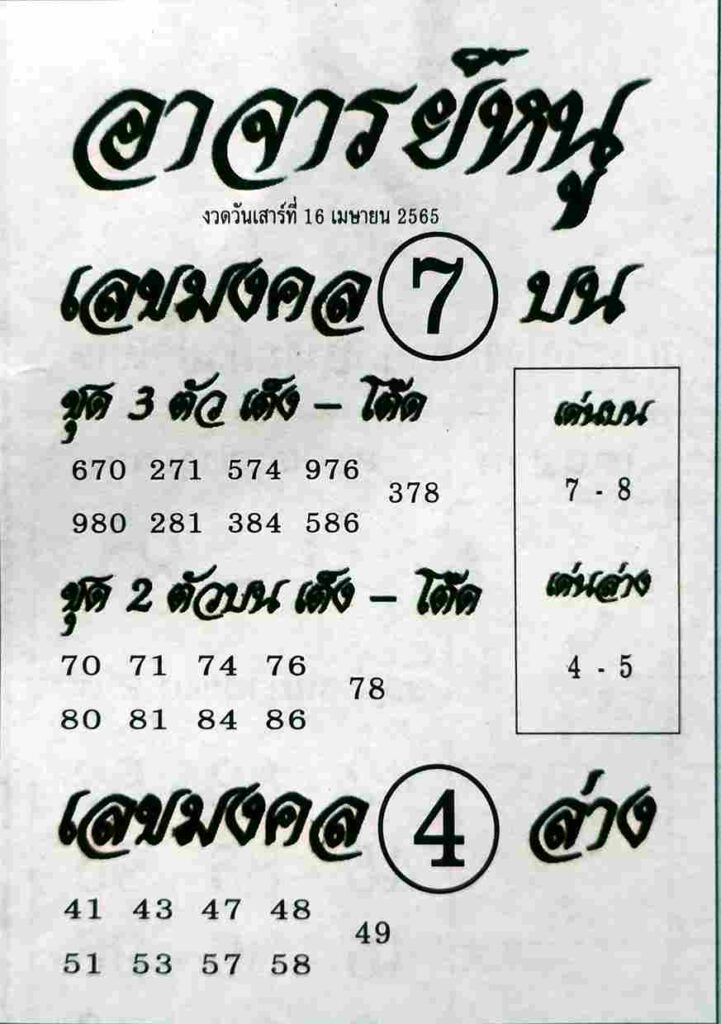 อาจารย์หนู
งวดวันเสาร์ที่ 16 เมษายน 2565
เลขมงคล 7 บน
ชุด 3 ตัว เต็ง – โต๊ด
670 271 574 976
378
980 281 384 586
เด่นบน
7 - 8
ชุด 2 ตัวบน เต็ง – โต๊ด
70 71 74 76
78
80 81 84 86
เด่นล่าง
4 - 5
เลขมงคล 4 ล่าง
41 43 47 48
49
51 53 57 58